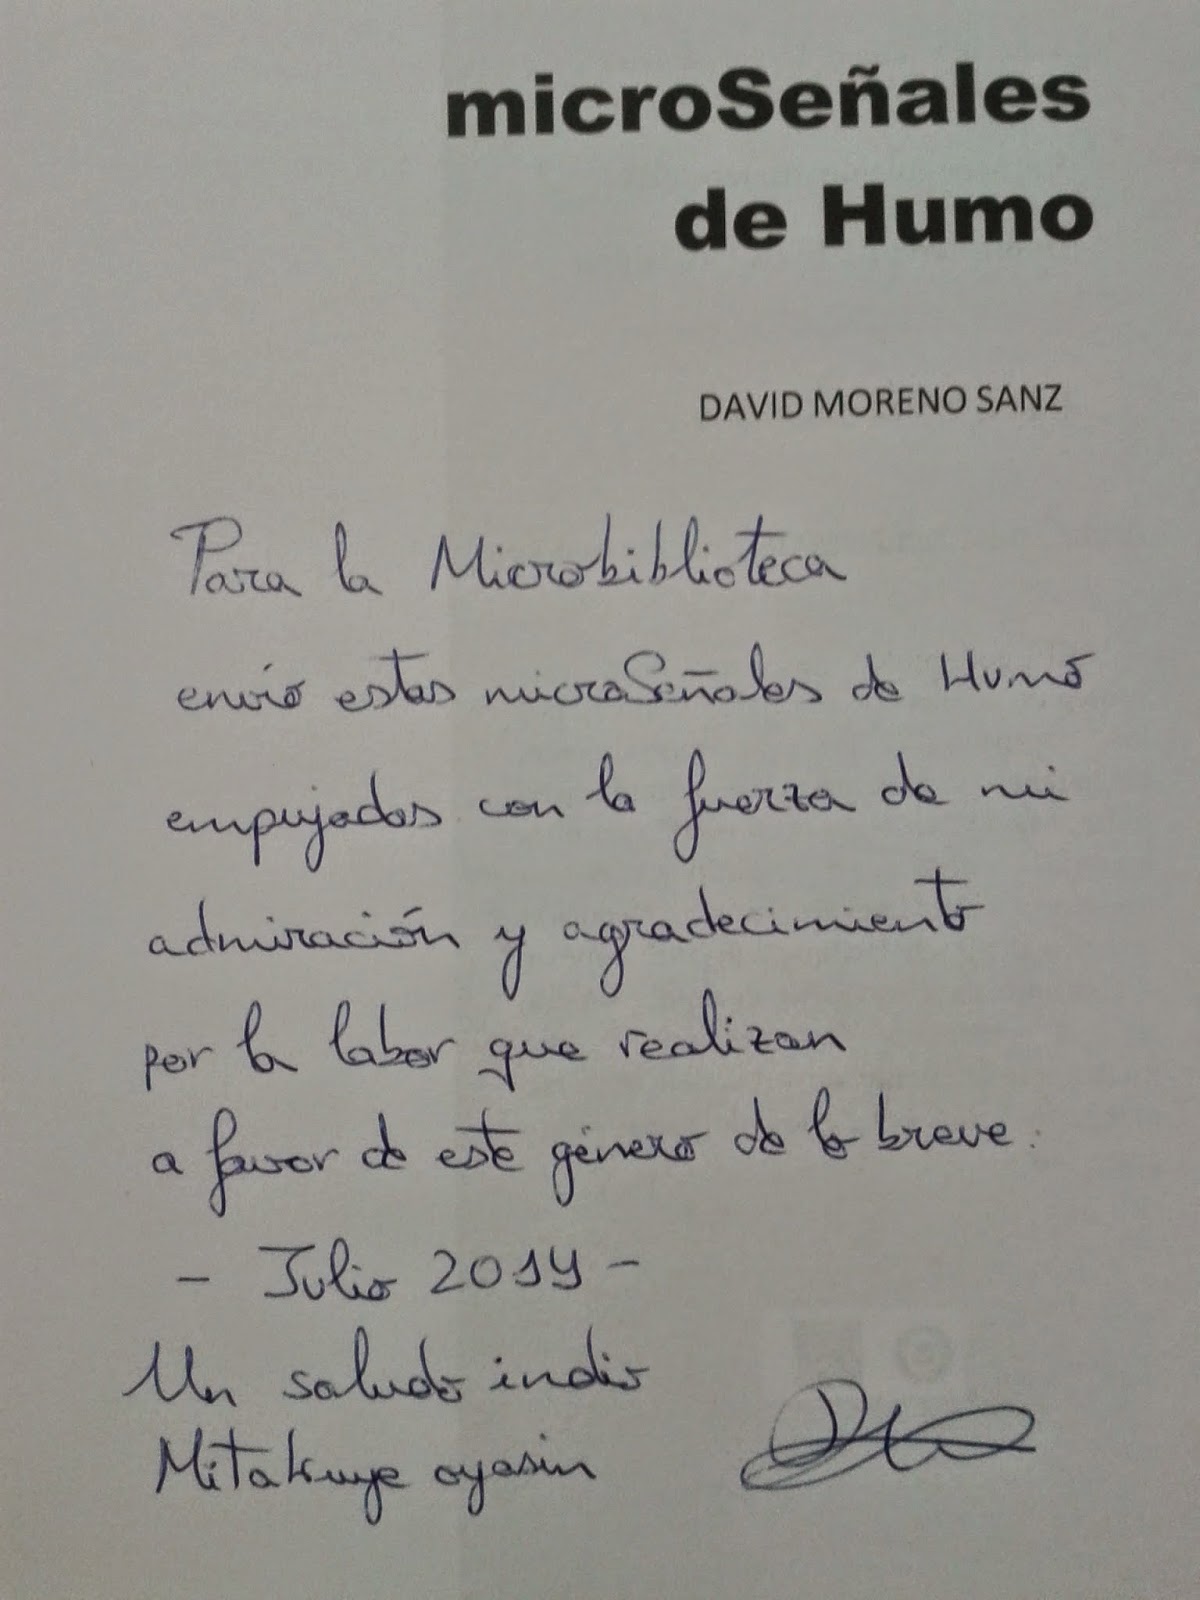 microSeñales
de Humo
DAVID MORENO SANZ
Para la Microbiblioteca
envío estas microSeñales de Humo
empujadas con la fuerza de mi
admiración y agradecimiento
por la labor que realizan
a favor de este género de lo breve.
- Julio 2014 -
Un saludo indio
Mitakuye oyasin